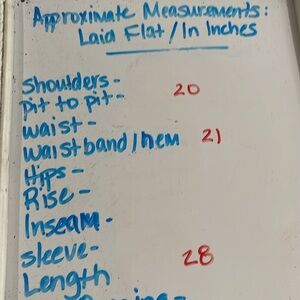 Approximate Measurements:
Laid Flat/In Inches
Shoulders-
pit to pit- 20
waist-
waistband/hem 21
Hips-
Rise-
Inseam-
sleeve- 28
Length